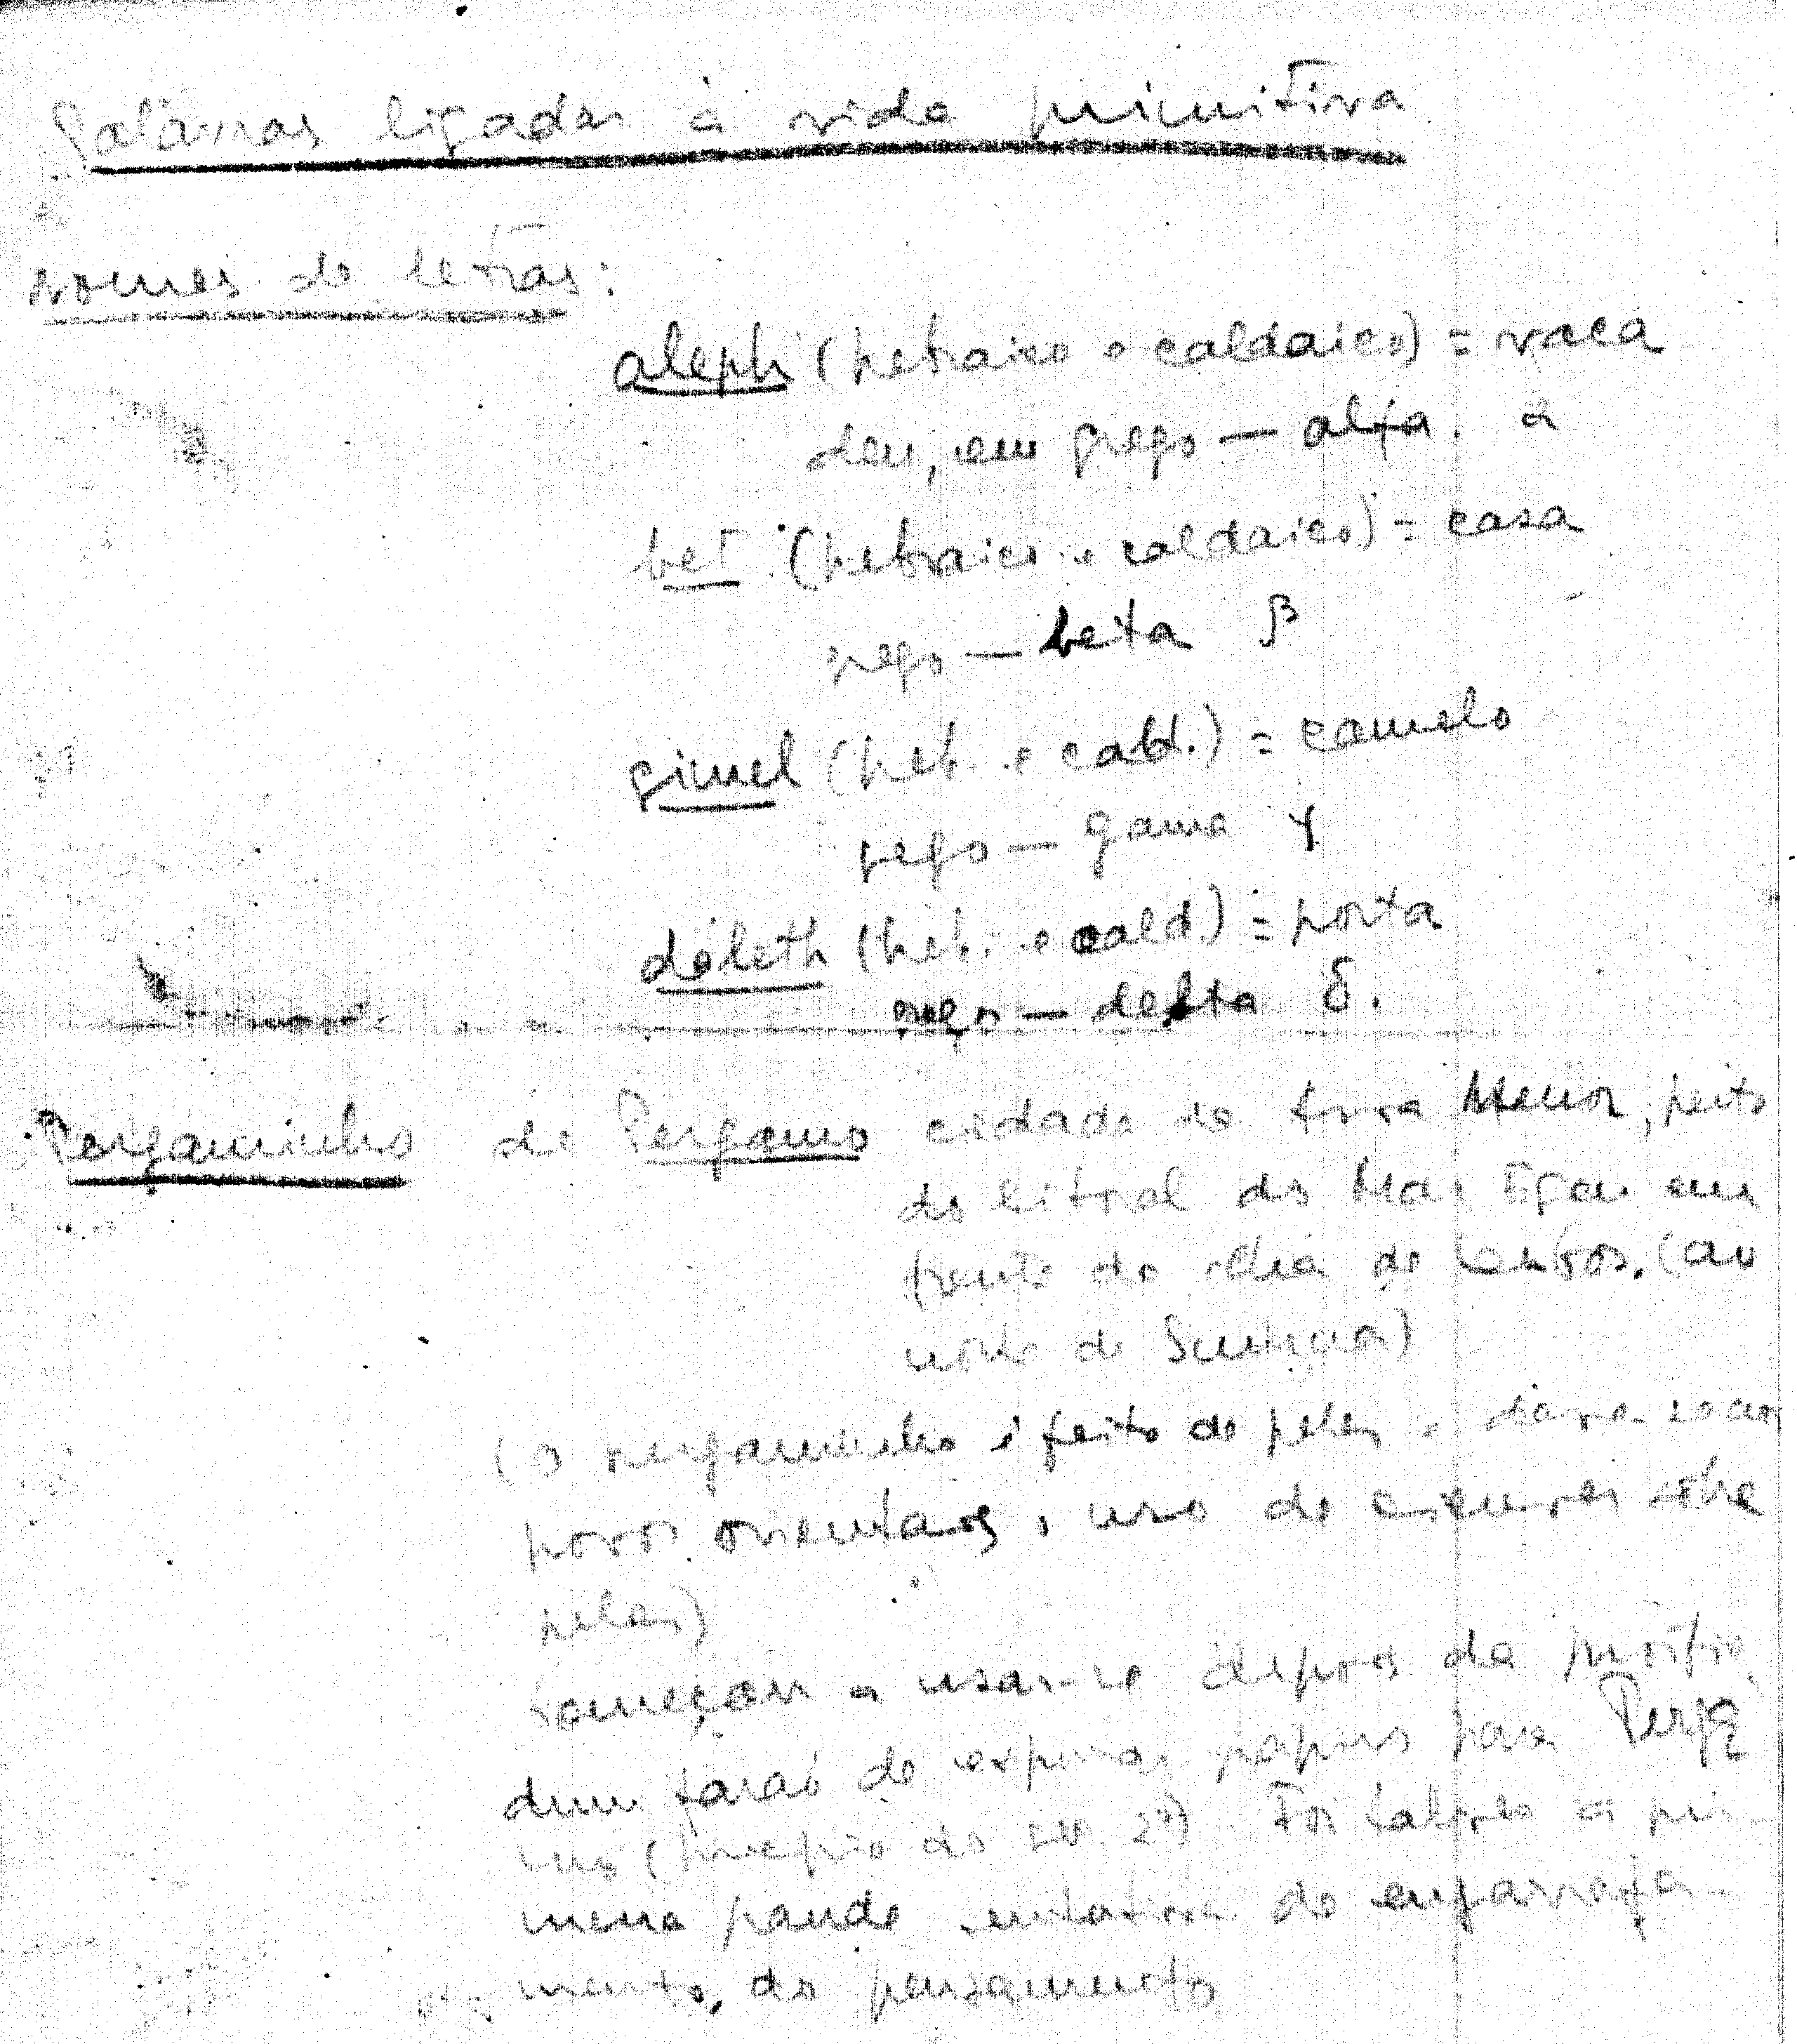 Palavras ligadas à vida primitiva
nomes de letras:
aleph (hebraico e caldaico) = vaca
deu, em grego — alfa. α
bet (hebraico e caldaico) = casa
grego — beta β
gimel (heb. e cald.) = camelo
grego — gama γ
daleth (heb. e cald.) = porta
grego — delta δ.
Pergaminho de Pergamo cidade da Ásia Menor, perto
do litoral do Mar Egeu em
frente da ilha de Lesbos. (ao
norte de Smirna)
(O pergaminho é feito de peles e
povos orientais, uso de escrever sobre
peles)
Começou a usar-se depois da proibição
dum faraó de exportar papiro para Perga
mo (princípio do séc. 2º) Foi talvez a pri
meira grande tentativa de engarrafa
mento, do pensamento